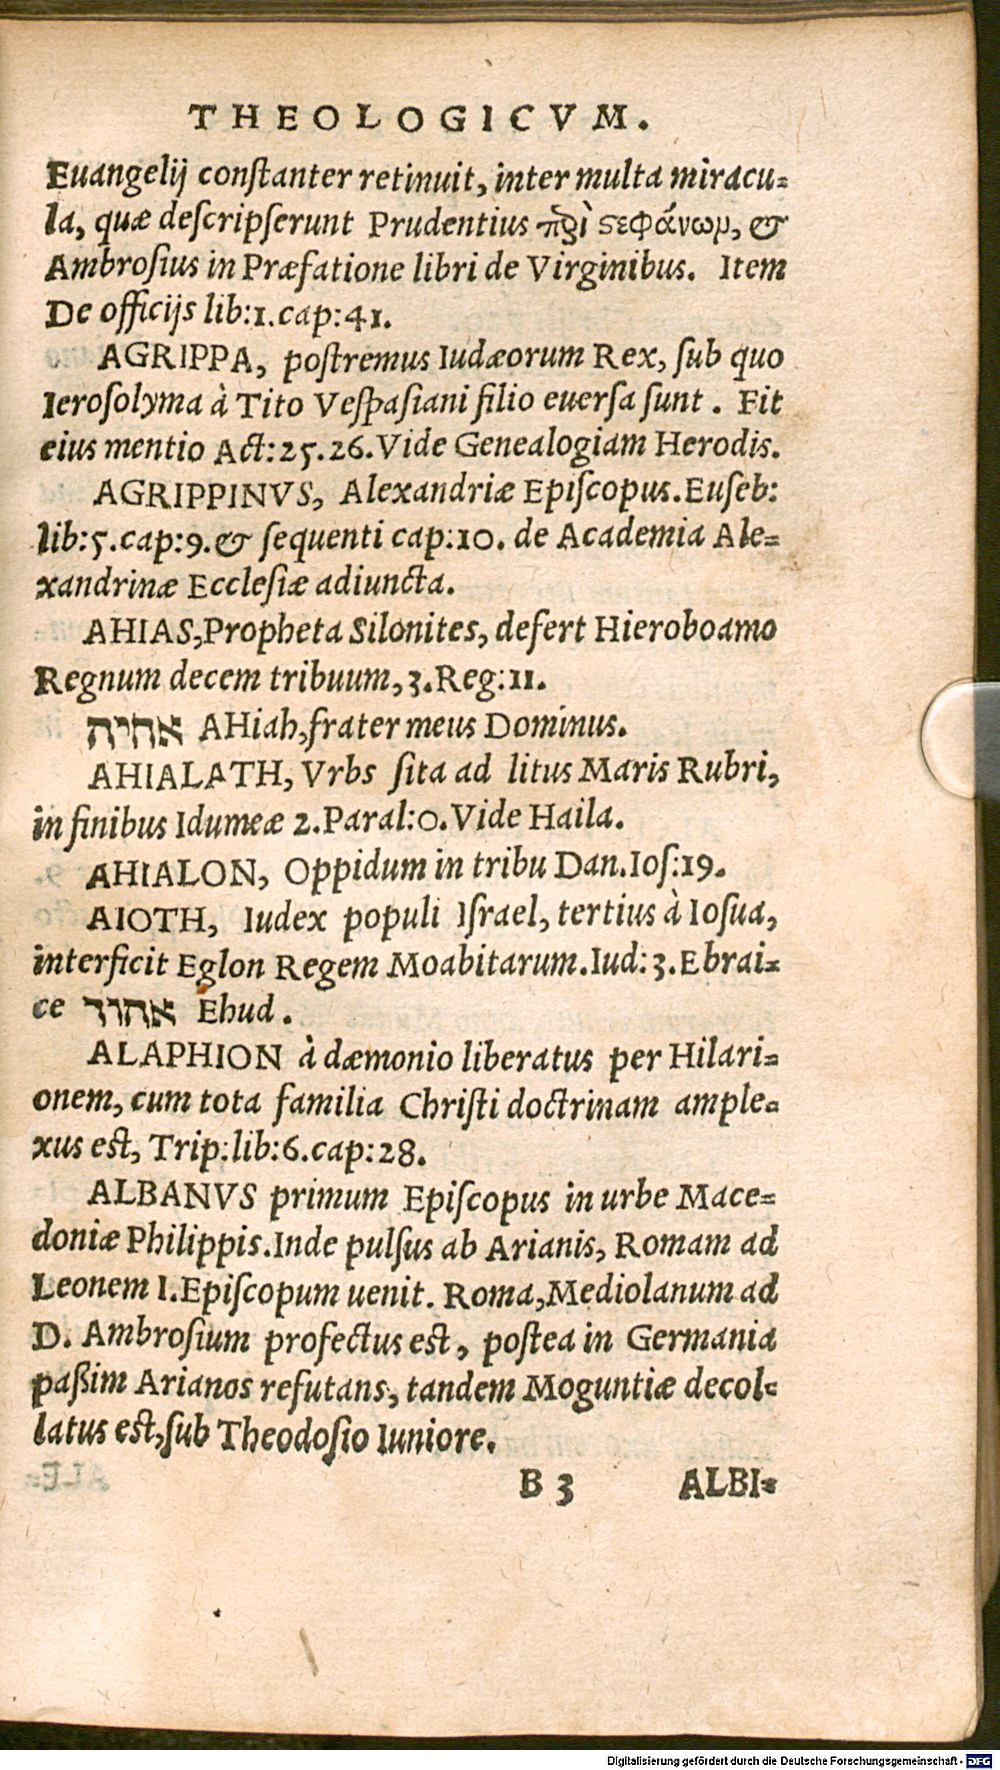 THEOLOGICVM.
Euangelij conſtanter retinuit, inter multa miracu-
la, quæ deſcripſerunt Prudentius πϱὶ ϛεφάνωμ, &
Ambroſius in Præfatione libri de Virginibus. Item
De officijs lib:1.cap:41.
AGRIPPA, poſtremus Iudæorum Rex, ſub quo
Ieroſolyma à Tito Veſpaſiani filio euerſa ſunt. Fit
eius mentio Act:25.26.Vide Genealogiam Herodis.
AGRIPPINVS, Alexandriæ Epiſcopus.Euſeb:
lib:5.cap:9.& ſequenti cap:10. de Academia Ale-
xandrinæ Eccleſiæ adiuncta.
AHIAS,Propheta Silonites, defert Hieroboamo
Regnum decem tribuum, 3.Reg:11.
אחיה AHiah,frater meus Dominus.
AHIALATH, Vrbs ſita ad litus Maris Rubri,
in finibus Idumeæ 2.Paral:0.Vide Haila.
AHIALON, Oppidum in tribu Dan.Ioſ:19.
AIOTH, Iudex populi Iſrael, tertius à Ioſua,
interficit Eglon Regem Moabitarum.Iud:3.Ebrai-
ce אהוד Ehud.
ALAPHION à dæmonio liberatus per Hilari-
onem, cum tota familia Chriſti doctrinam ample-
xus eſt, Trip:lib:6.cap:28.
ALBANVS primum Epiſcopus in urbe Mace-
doniæ Philippis.Inde pulſus ab Arianis, Romam ad
Leonem I.Epiſcopum uenit. Roma,Mediolanum ad
D. Ambroſium profectus eſt, poſtea in Germania
paßim Arianos refutans, tandem Moguntiæ decol-
latus eſt,ſub Theodoſio Iuniore.
B 3 ALBI-
Digitalisierung gefördert durch die Deutsche Forschungsgemeinschaft - DFG